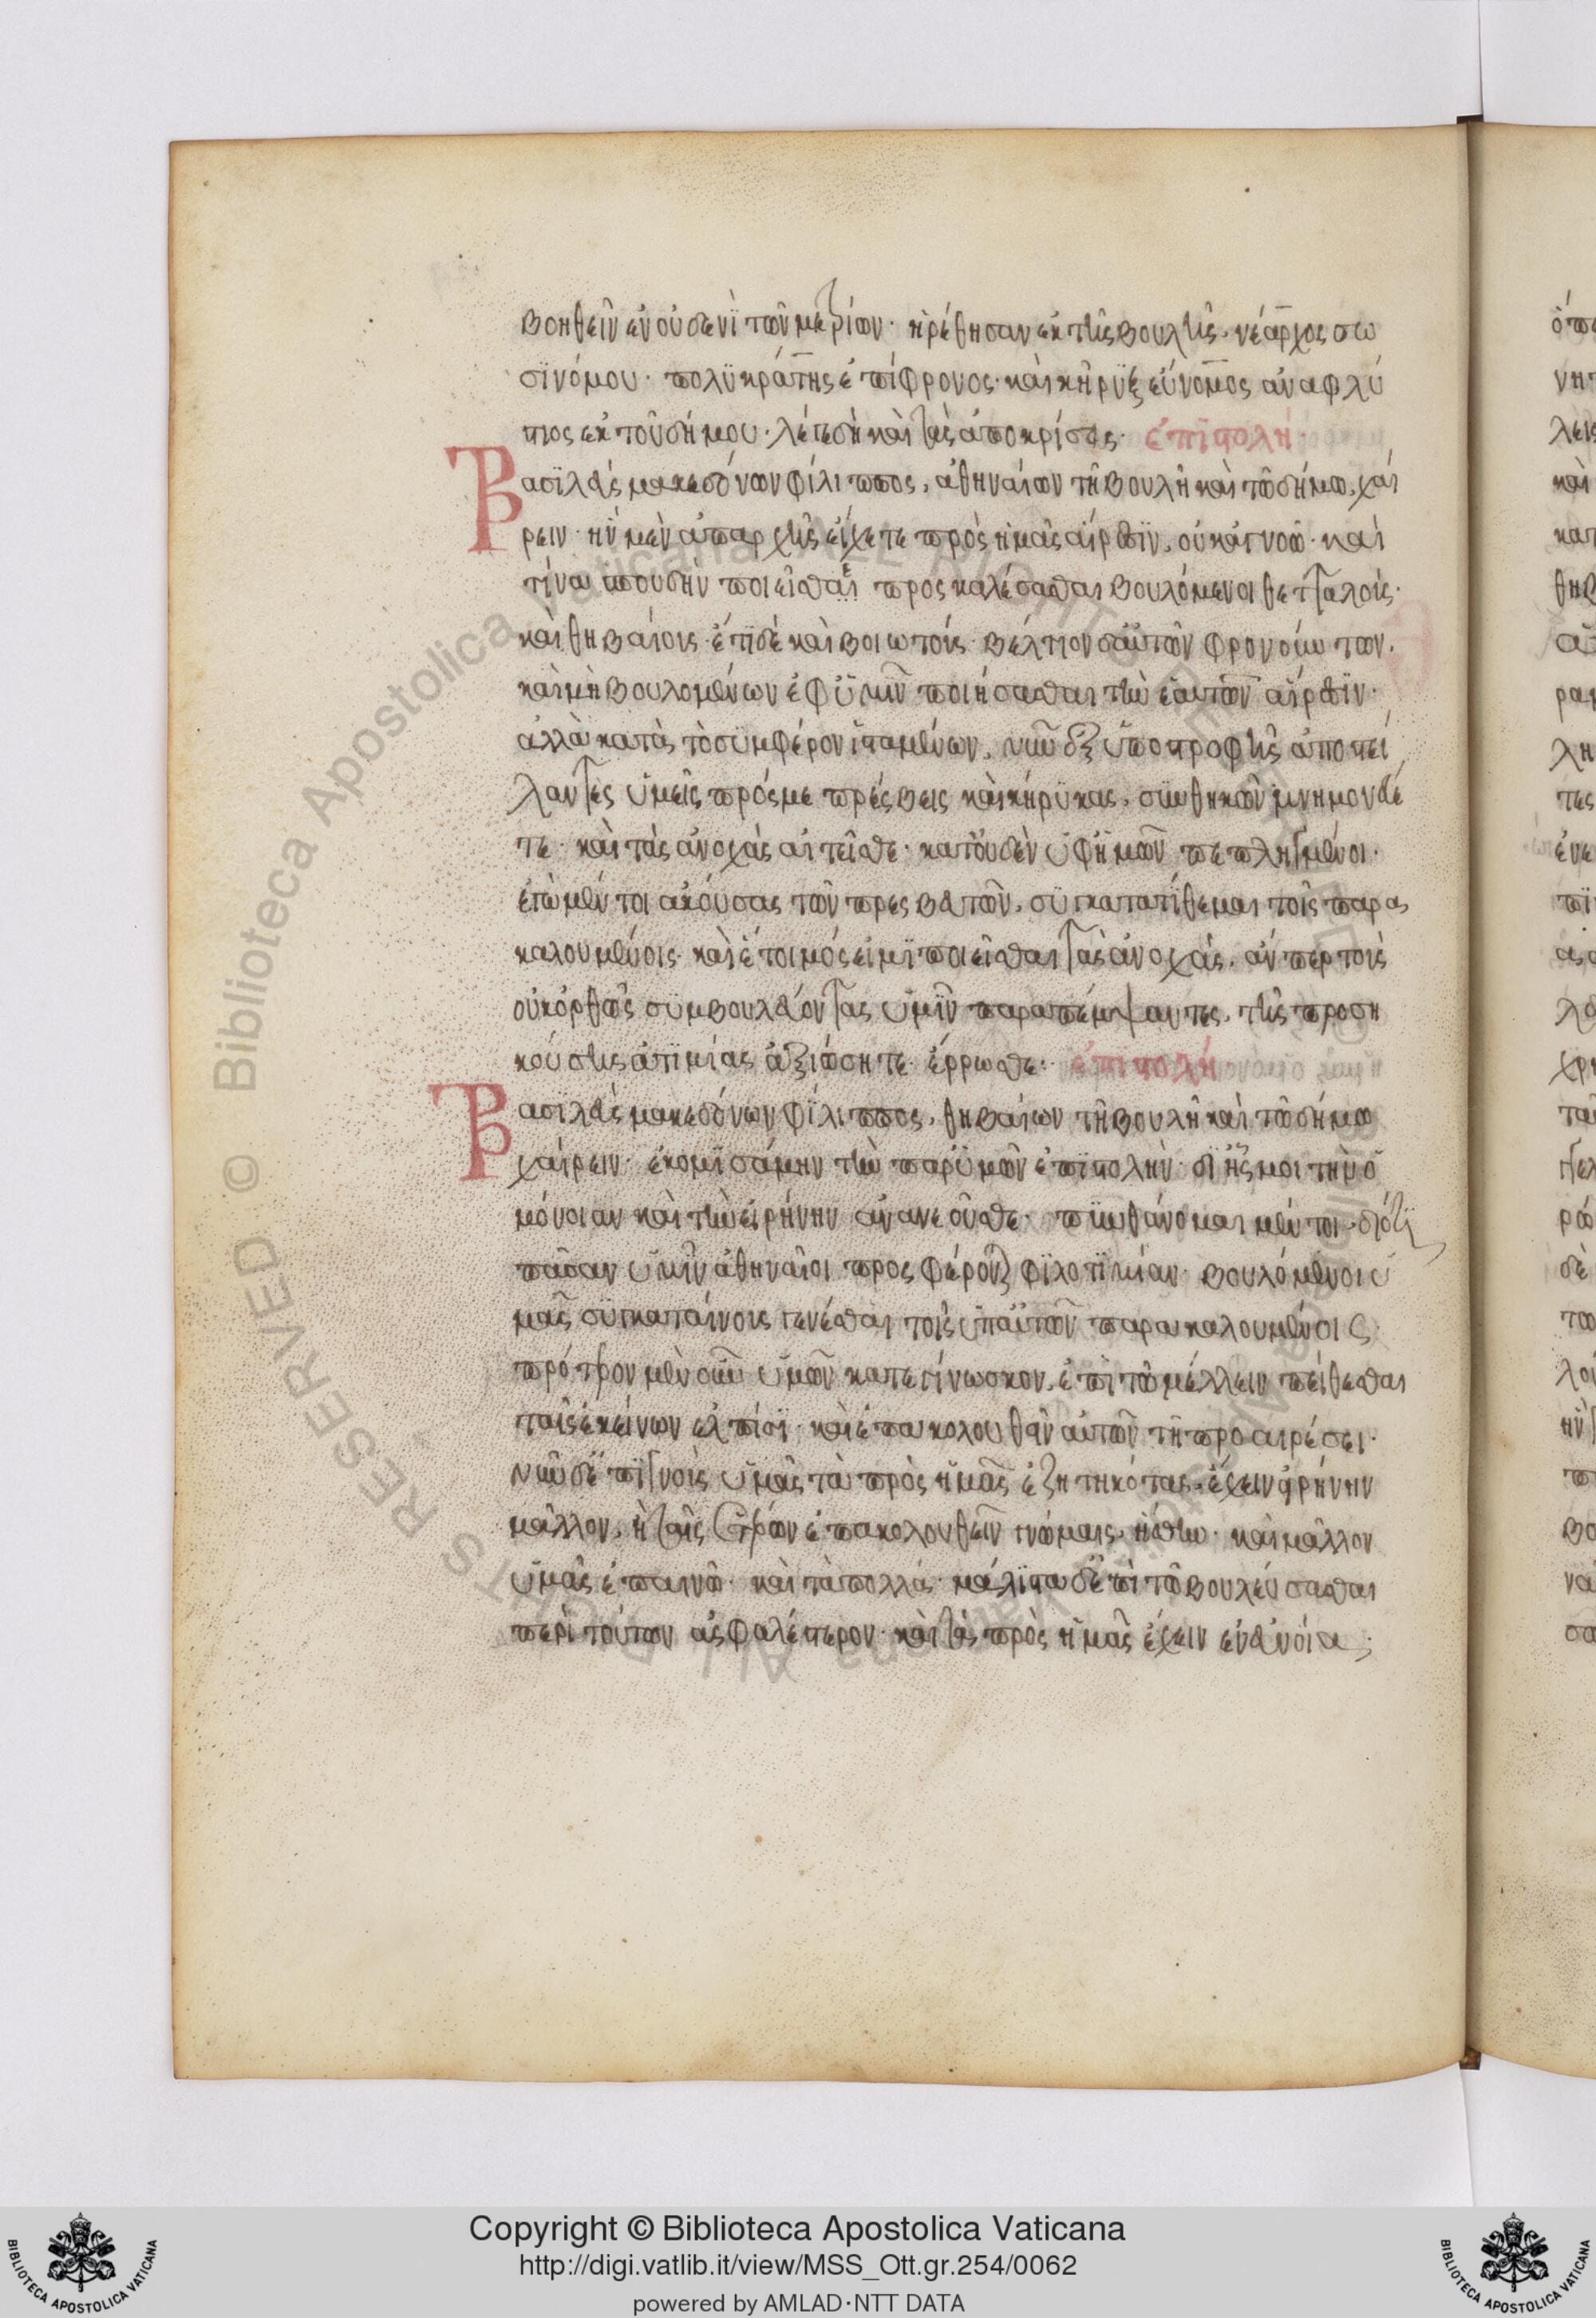 βοηθεῖν ἐν οὐδενὶ τῶν μετρίων· ἡρέθησαν ἐκ τῆς βουλῆς, νέαρχος σω
σϊνόμου· πολϋκράτης ἐπίφρονος· καὶ κῆρϋξ εὔνομος ἀναφλύ
στιος ἐκ τοῦ δήμου· λέγε δὴ καὶ τὰς ἀποκρίσεις· ἐπϊστολή·
Βασϊλεὺς μακεδόνων φίλιππος, ἀθηναίων τῆ βουλῆ καὶ τῶ δήμω, χαί
ρειν· ἣν μὲν ἀπαρχῆς εἴχετε πρὸς ἡμᾶς αἵρεσϊν, οὐκ ἀγνοῶ· καὶ
τίνα σπουδὴν ποιεῖσθαι προσκαλέσασθαι βουλόμενοι θετταλοὺς·
καὶ θηβαίους· ἔτϊ δὲ καὶ βοιωτούς· βέλτιον δαὐτῶν φρονούντων·
καὶ μὴ βουλομένων ἐφὑμῖν ποιήσασθαι τὴν ἑαυτῶν αἵρεσϊν·
ἀλλὰ κατὰ τὸ σϋμφέρον ἱσταμένων, νῦν δἐξ ὑποστροφῆς ἀποστεί
λαντες ὑμεῖς πρός με πρέσβεις καὶ κήρϋκας, σϋνθηκῶν μνημονεύε
τε· καὶ τὰς ἀνοχὰς αἰτεῖσθε· κατοὐδὲν ὑφἡμῶν πεπλημμένοι·
ἐγὼ μέντοι ἀκούσας τῶν πρεσβευτῶν, σϋγκατατίθεμαι τοῖς παρα
καλουμένοις· καὶ ἕτοιμός εἰμϊ ποιεῖσθαι τὰς ἀνοχάς, ἄν περ τοὺς
οὐκ ὀρθῶς σϋμβουλεύοντας ὑμῖν παραπέμψαντες, τῆς προση
κούσης ἀτϊμίας ἀξιώσητε· ἔρρωσθε· ἐπιστολή
Βασϊλεὺς μακεδόνων φίλιππος, θηβαίων τῆ βουλῆ καὶ τῶ δήμω
χαίρειν· ἐκομϊσάμην τὴν παρὑμῶν ἐπϊστολὴν· δἰ ἧς μοι τὴν ὁ
μόνοιαν καὶ τὴν εἰρήνην ἀνανεοῦσθε· πϋνθάνομαι μέντοι διότϊ
πᾶσαν ὑμῖν ἀθηναῖοι προσφέρονται φϊλοτϊμίαν· βουλόμενοι ὑ
μᾶς σϋγκαταίνους γενέσθαι τοῖς ὑπαὐτῶν παρακαλουμένοις
πρότερον μὲν οὖν ὑμῶν κατεγίνωσκον, ἐπὶ τῶ μέλλειν πείθεσθαι
ταῖς ἐκείνων ἐλπίσϊ· καὶ ἐπακολουθεῖν αὐτῶν τῆ προαιρέσει·
νῦν δἐπϊγνοὺς ὑμᾶς τὰ πρὸς ἡμᾶς ἐζητηκότας, ἔχειν εἰρήνην
μᾶλλον, ἢ ταῖς ἑτέρων ἐπακολουθεῖν γνώμαις, ἥσθην· καὶ μᾶλλον
ὑμᾶς ἐπαινῶ· κατὰ πολλά· μάλϊστα δἐπὶ τῶ βουλεύσασθαι
περὶ τούτων ἀσφαλέστερον· καὶ τὰ πρὸς ἡμᾶς ἔχειν ἐν εὐνοία;
Copyright © Biblioteca Apostolica Vaticana
http://digi.vatlib.it/view/MSS_Ott.gr.254/0062
powered by AMLAD·NTT DATA